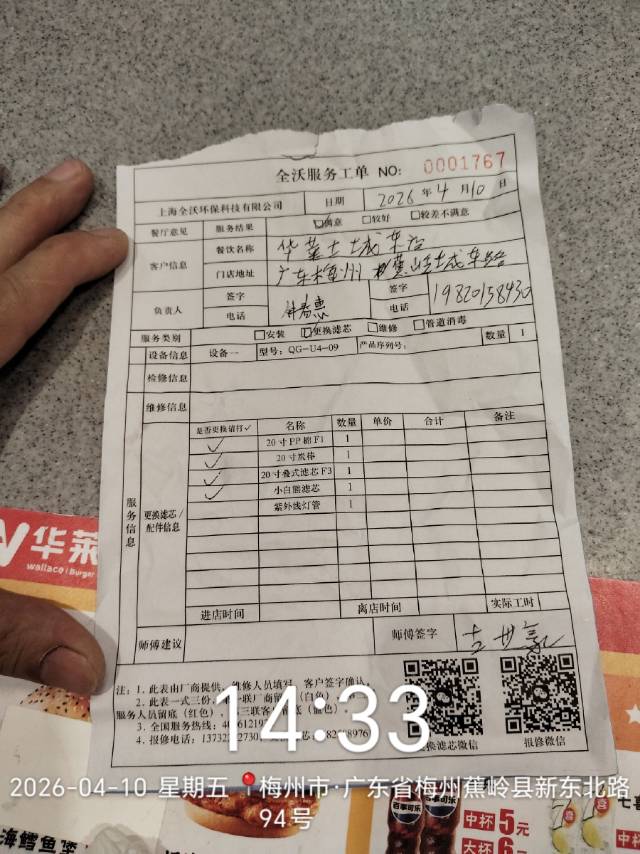 全沃服务工单 NO: 0001767
上海全沃环保科技有限公司 日期 2026年4月10日
餐厅意见 服务结果 ☑满意 □较好 □较差不满意
客户信息 餐饮名称 华莱士城东店
门店地址 广东梅州
负责人 签字 签字
电话 电话 19820138430
服务类别 □安装 ☑更换滤芯 □维修 □管道消毒
设备信息 设备一 型号: QG-U4-09 产品序列号: 数量 1
检修信息
服务信息
维修信息
更换滤芯/配件信息
是否更换请打✓ 名称 数量 单价 合计 备注
✓ 20寸PP棉F1 1
✓ 20寸炭棒 1
✓ 20寸叠式滤芯F3 1
✓ 小白熊滤芯 1
紫外线灯管 1
进店时间 离店时间 实际工时
师傅建议 师傅签字
注: 1. 此表由厂商提供, 维修人员填写, 客户签字确认。
2. 此表一式三份,
服务人员留底(红色),
3. 全国服务热线:
4. 报修电话:
更换滤芯微信 报修微信
14:33
2026-04-10 星期五 梅州市·广东省梅州蕉岭县新东北路
94号
华莱
wallace | Burger
海鳕鱼堡
百事可乐
中杯 5元
大杯 6元
七喜